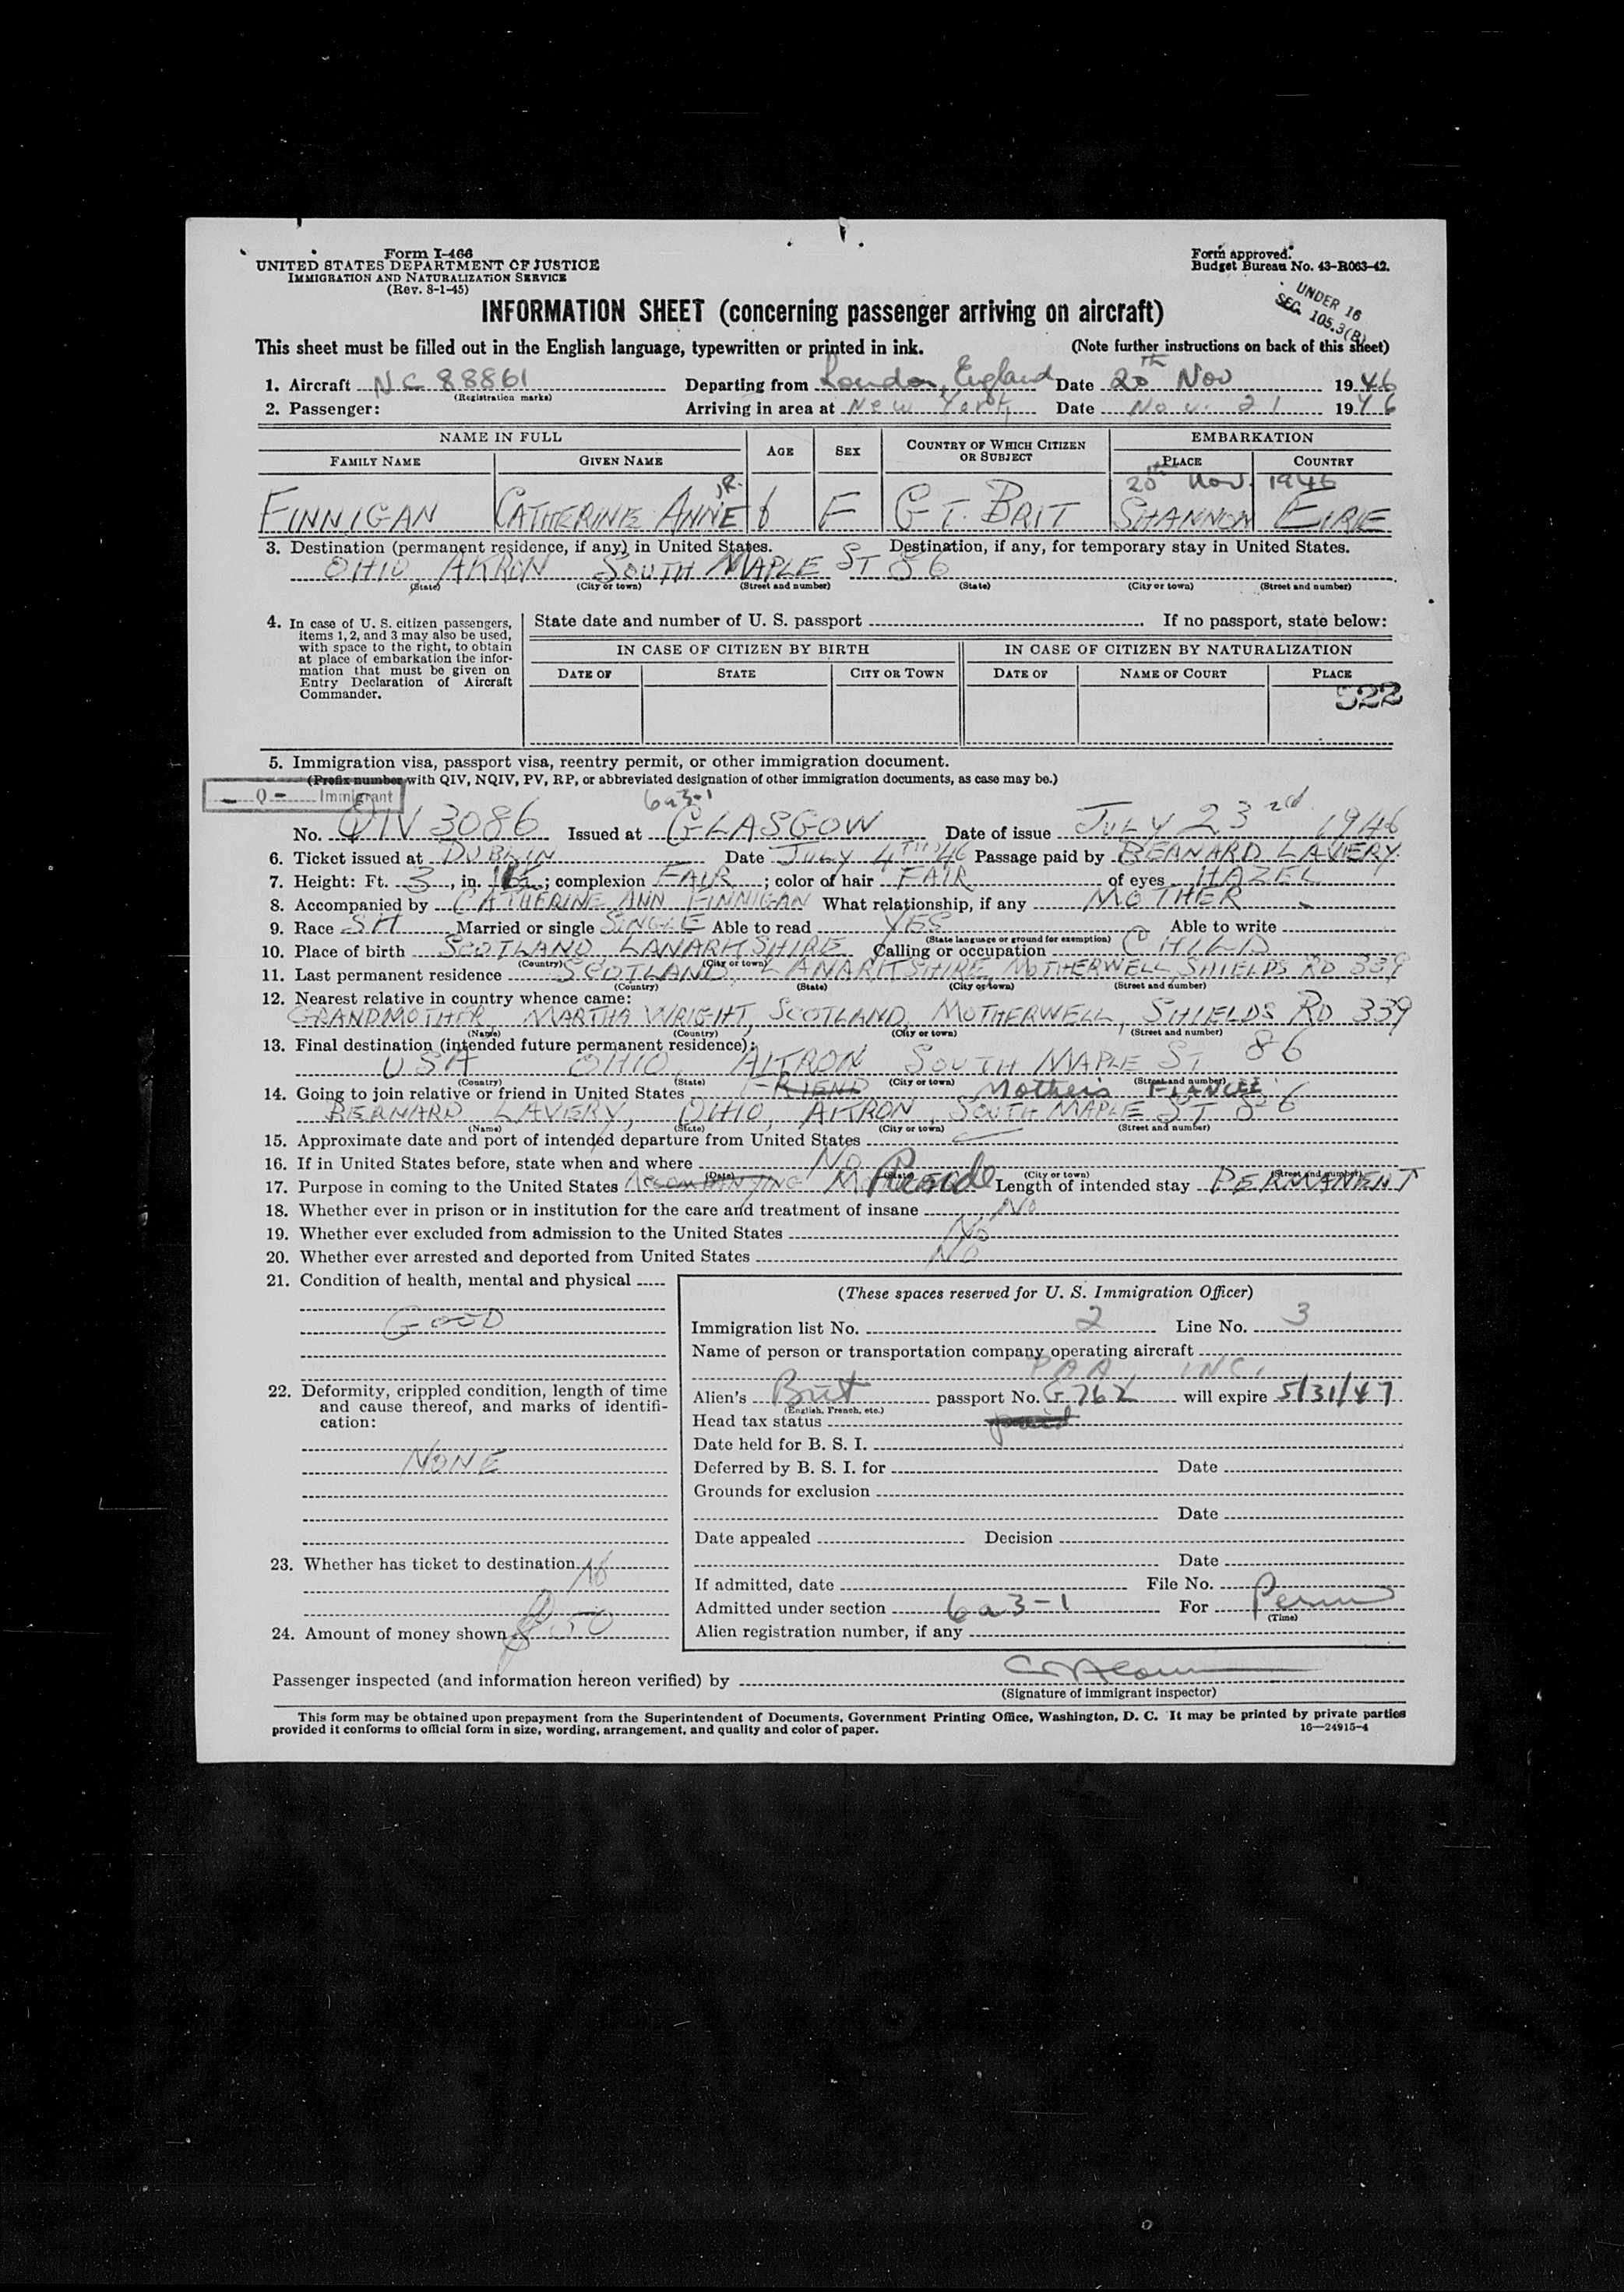 Form I-466
UNITED STATES DEPARTMENT OF JUSTICE
IMMIGRATION AND NATURALIZATION SERVICE
(Rev. 8-1-45)
Form approved.
Budget Bureau No. 43-R063-42.
UNDER 16
SEC. 105.3(B)
INFORMATION SHEET (concerning passenger arriving on aircraft)
This sheet must be filled out in the English language, typewritten or printed in ink. (Note further instructions on back of this sheet)
1. Aircraft NC 88861 Departing from London, England Date 20th Nov 1946
(Registration marks)
2. Passenger: Arriving in area at New York Date Nov. 21 1946
NAME IN FULL AGE SEX COUNTRY OF WHICH CITIZEN OR SUBJECT EMBARKATION
FAMILY NAME GIVEN NAME PLACE COUNTRY
20th Nov. 1946
FINNIGAN CATHERINE ANNE JR. 6 F GT. BRIT SHANNON EIRE
3. Destination (permanent residence, if any) in United States. Destination, if any, for temporary stay in United States.
OHIO AKRON SOUTH MAPLE ST 86
(State) (City or town) (Street and number) (State) (City or town) (Street and number)
4. In case of U. S. citizen passengers, items 1, 2, and 3 may also be used, with space to the right, to obtain at place of embarkation the information that must be given on Entry Declaration of Aircraft Commander.
State date and number of U. S. passport If no passport, state below:
IN CASE OF CITIZEN BY BIRTH IN CASE OF CITIZEN BY NATURALIZATION
DATE OF STATE CITY OR TOWN DATE OF NAME OF COURT PLACE
522
5. Immigration visa, passport visa, reentry permit, or other immigration document.
(Prefix number with QIV, NQIV, PV, RP, or abbreviated designation of other immigration documents, as case may be.)
Q - Immigrant
6a3-1
No. QIV 3086 Issued at GLASGOW Date of issue JULY 23rd 1946
6. Ticket issued at DUBLIN Date JULY 4TH 46 Passage paid by BERNARD LAVERY
7. Height: Ft. 3, in. ; complexion FAIR; color of hair FAIR of eyes HAZEL
8. Accompanied by CATHERINE ANN FINNIGAN What relationship, if any MOTHER
9. Race SH Married or single SINGLE Able to read YES Able to write
(State language or ground for exemption)
10. Place of birth SCOTLAND, LANARKSHIRE Calling or occupation CHILD
(Country) (City or town)
11. Last permanent residence SCOTLAND, LANARKSHIRE, MOTHERWELL, SHIELDS RD 339
(Country) (State) (City or town) (Street and number)
12. Nearest relative in country whence came:
GRANDMOTHER, MARTHA WRIGHT, SCOTLAND, MOTHERWELL, SHIELDS RD 339
(Name) (Country) (City or town) (Street and number)
13. Final destination (intended future permanent residence):
USA OHIO, AKRON SOUTH MAPLE ST 86
(Country) (State) (City or town) (Street and number)
14. Going to join relative or friend in United States FRIEND Mother's FIANCEE
BERNARD LAVERY, OHIO, AKRON, SOUTH MAPLE ST 86
(Name) (State) (City or town) (Street and number)
15. Approximate date and port of intended departure from United States
16. If in United States before, state when and where NO
(Date) (State) (City or town) (Street and number)
17. Purpose in coming to the United States ACCOMPANYING Reside Length of intended stay PERMANENT
18. Whether ever in prison or in institution for the care and treatment of insane NO
19. Whether ever excluded from admission to the United States NO
20. Whether ever arrested and deported from United States NO
21. Condition of health, mental and physical
GOOD
22. Deformity, crippled condition, length of time and cause thereof, and marks of identification:
NONE
23. Whether has ticket to destination
24. Amount of money shown 50
(These spaces reserved for U. S. Immigration Officer)
Immigration list No. 2 Line No. 3
Name of person or transportation company operating aircraft
PAA INC.
Alien's Brit passport No. G 762 will expire 5/31/47
(English, French, etc.)
Head tax status
Date held for B. S. I.
Deferred by B. S. I. for Date
Grounds for exclusion
Date
Date appealed Decision
Date
If admitted, date File No.
Admitted under section 6a3-1 For Perm
(Time)
Alien registration number, if any
Passenger inspected (and information hereon verified) by
(Signature of immigrant inspector)
This form may be obtained upon prepayment from the Superintendent of Documents, Government Printing Office, Washington, D. C. It may be printed by private parties
provided it conforms to official form in size, wording, arrangement, and quality and color of paper. 16—24915-4